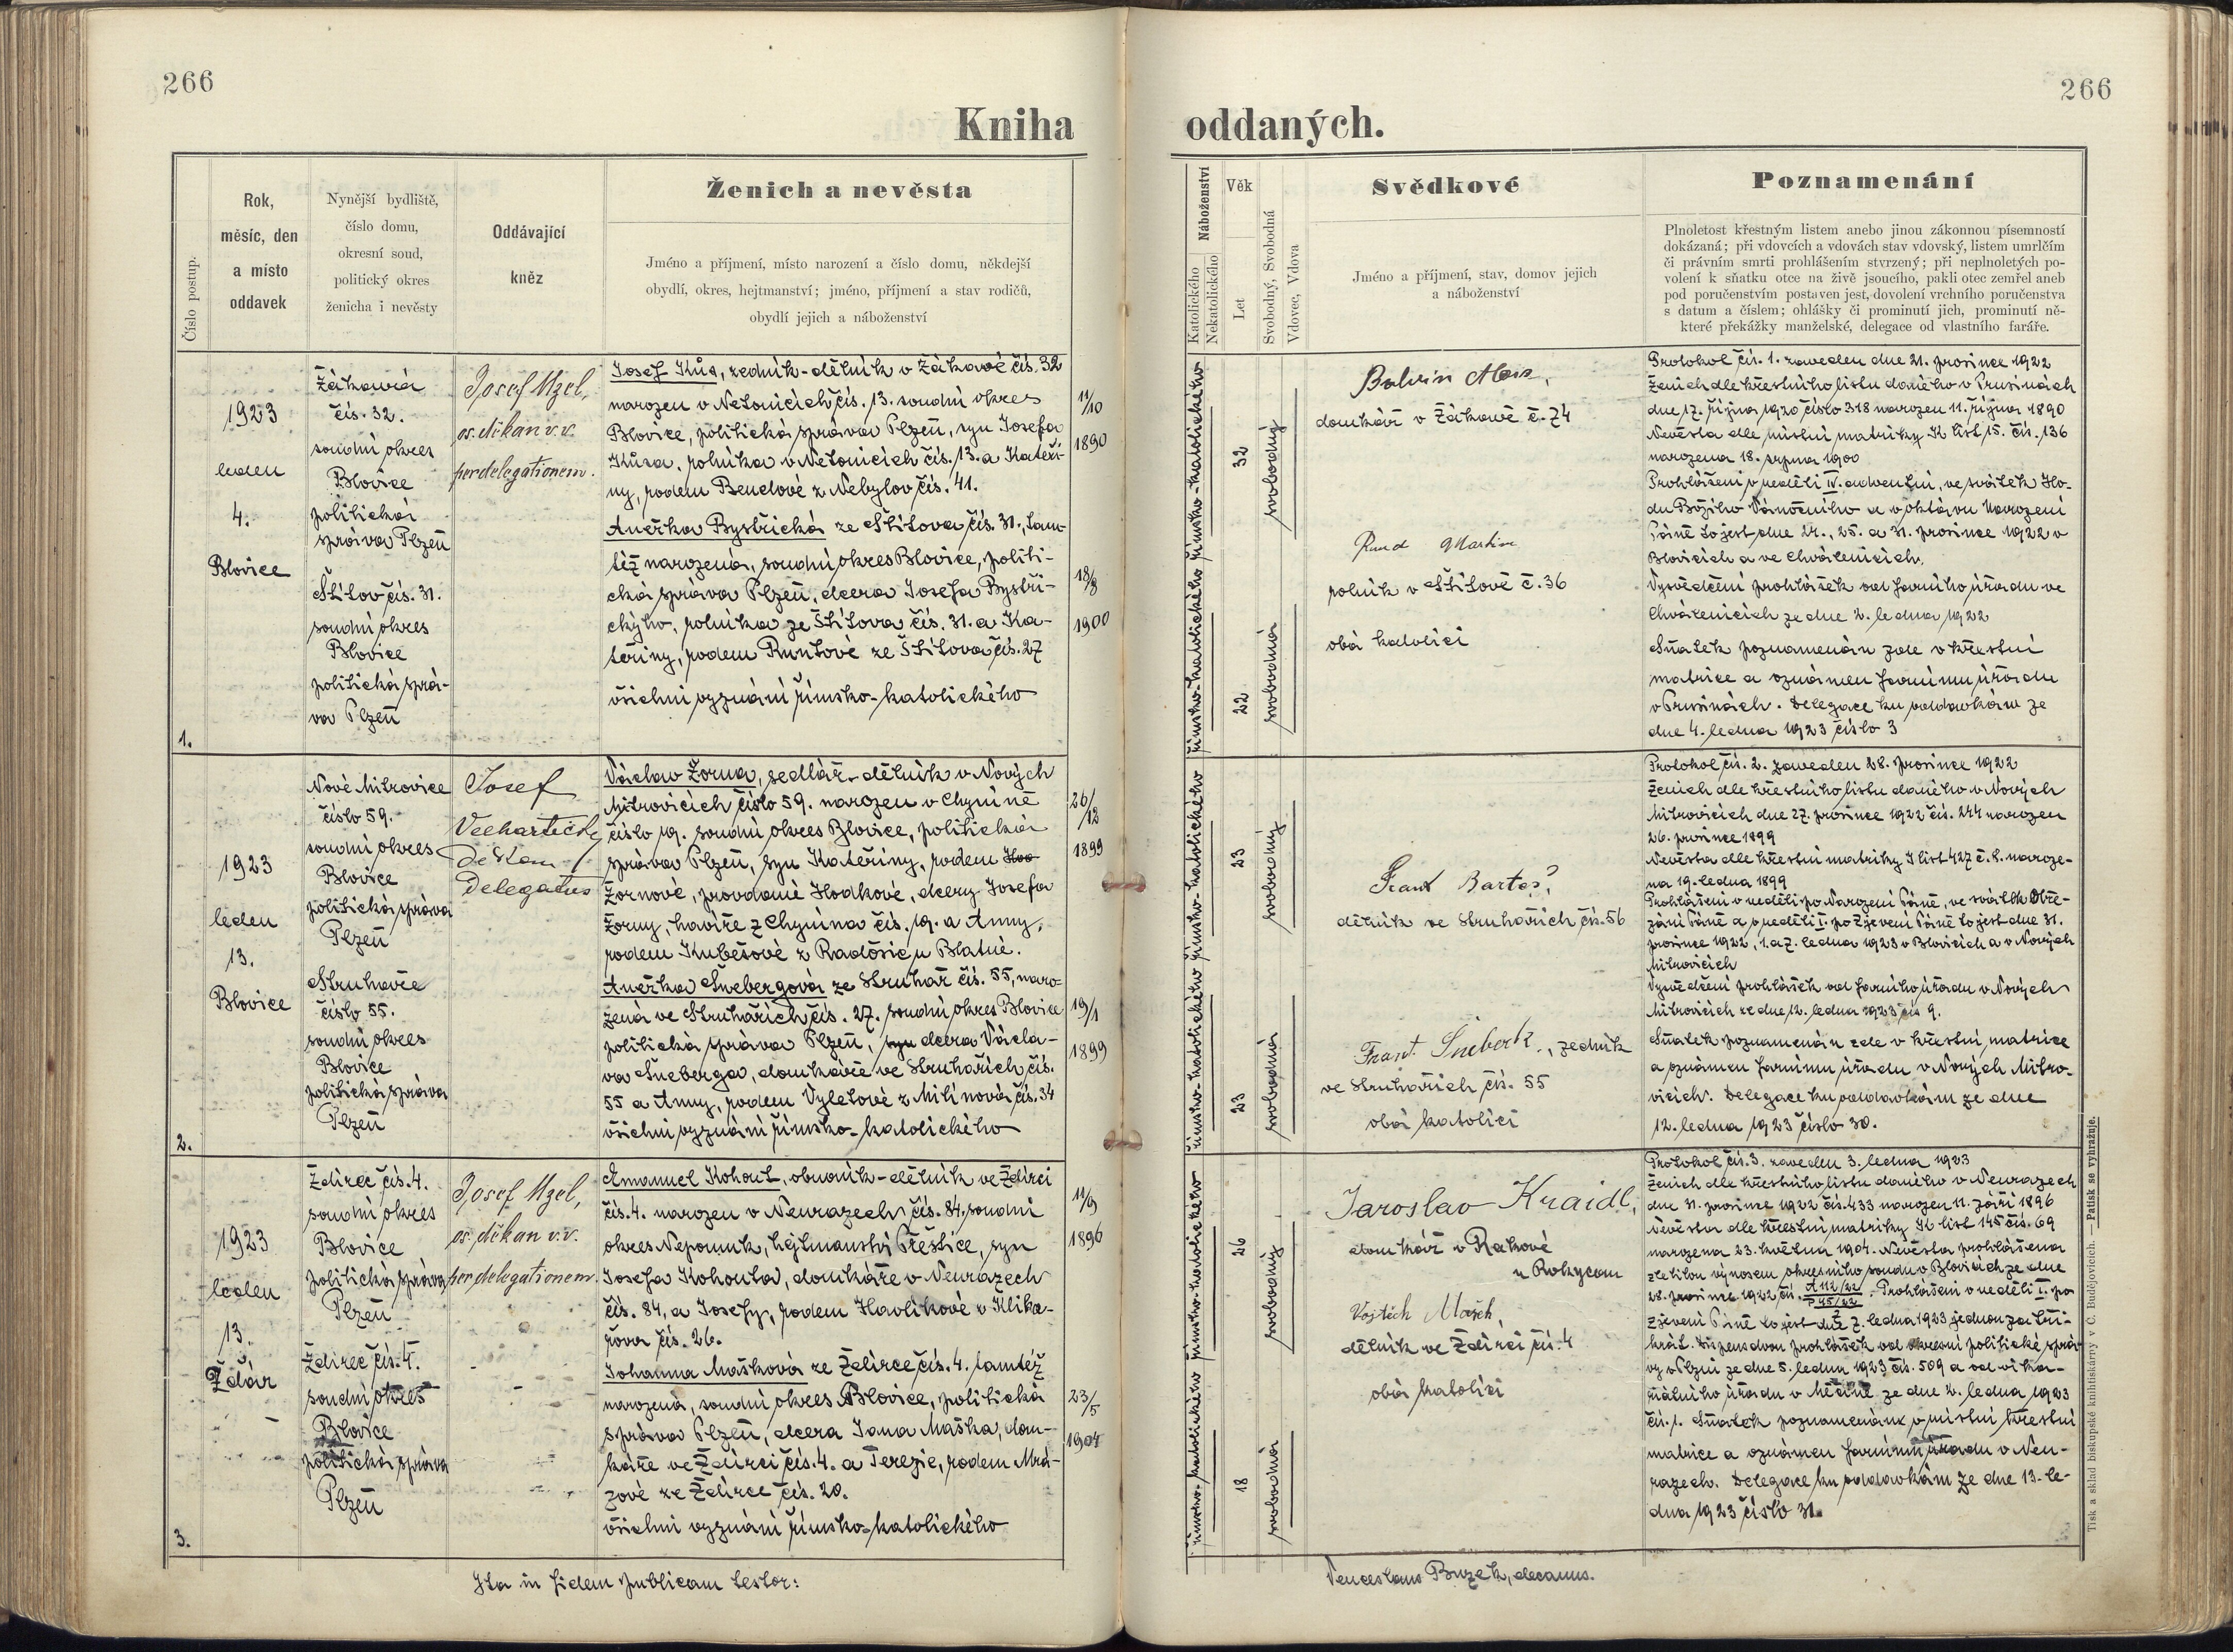 266
266
Kniha oddaných.
Číslo postup.
Rok,
měsíc, den
a místo
oddavek
Nynější bydliště,
číslo domu,
okresní soud,
politický okres
ženicha i nevěsty
Oddávající
kněz
Ženich a nevěsta
Jméno a příjmení, místo narození a číslo domu, někdejší
obydlí, okres, hejtmanství; jméno, příjmení a stav rodičů,
obydlí jejich a náboženství
Náboženství
Katolického
Nekatolického
Věk
Let
Svobodný, Svobodná
Vdovec, Vdova
Svědkové
Jméno a příjmení, stav, domov jejich
a náboženství
Poznamenání
Plnoletost křestným listem anebo jinou zákonnou písemností
dokázaná; při vdovcích a vdovách stav vdovský, listem umrlčím
či právním smrti prohlášením stvrzený; při neplnoletých po-
volení k sňatku otce na živě jsoucího, pakli otec zemřel aneb
pod poručenstvím postaven jest, dovolení vrchního poručenstva
s datum a číslem; ohlášky či prominutí jich, prominutí ně-
které překážky manželské, delegace od vlastního faráře.
1.
1923
leden
4.
Blovice
Žákavá
čís. 32.
soudní okres
Blovice
politická
správa Plzeň
Štítov čís. 31.
soudní okres
Blovice
politická sprá-
va Plzeň
Josef Uzel,
os. děkan v. v.
per delegationem.
Josef Kůs, zedník-dělník v Žákavě čís. 32
narozen v Netonicích čís. 13. soudní okres
Blovice, politická správa Plzeň, syn Josefa
Kůsa, rolníka v Netonicích čís. 13. a Kateři-
ny, rodem Bendové z Nebylov čís. 41.
Anežka Bystřická ze Štítova čís. 31., tam-
též narozená, soudní okres Blovice, politi-
cká správa Plzeň, dcera Josefa Bystři-
ckýho, rolníka ze Štítova čís. 31. a Ka-
teřiny, rodem Runtové ze Štítova čís. 27
všichni vyznání římsko-katolického
11/10
1890
18/8
1900
římsko-katolického
římsko-katolického
32
22
svobodný
svobodná
domkář v Žákavě č. 74
Martin
rolník v Štítově č. 36
oba katolíci
Protokol čís. 1. zaveden dne 21. prosince 1922
Ženich dle křestního listu daného v Prusinách
dne 17. října 1920 číslo 318 narozen 11. října 1890
Nevěsta dle místní matriky K list 15. čís. 136
narozena 18. srpna 1900
Prohlášení v neděli IV. adventní, ve svátek Ho-
du Božího Vánočního a v oktávu Narození
Páně to jest dne 24., 25. a 31. prosince 1922 v
Blovicích a ve Chválenicích.
Vysvědčení prohlášek od farního úřadu ve
Chválenicích ze dne 2. ledna 1922
Sňatek poznamenán zde v křestní
matrice a oznámen farnímu úřadu
v Prusinách. Delegace ku oddavkám ze
dne 4. ledna 1923 číslo 3
2.
1923
leden
13.
Blovice
Nové Mitrovice
číslo 59.
soudní okres
Blovice
politická správa
Plzeň
Struhaře
číslo 55.
soudní okres
Blovice
politická správa
Plzeň
Josef
Delegatus
Václav Žorna, sedlář-dělník v Nových
Mitrovicích číslo 59. narozen v Chyníně
číslo 19. soudní okres Blovice, politická
správa Plzeň, syn Kateřiny, rodem
Žornové, provdané Hodkové, dcery Josefa
Žorny, havíře z Chynína čís. 19. a Anny,
rodem Kubešové z Radošic u Blatné.
Anežka Šnebergová ze Struhař čís. 55, naro-
zená ve Struhařích čís. 27. soudní okres Blovice
politická správa Plzeň, syn dcera Václa-
va Šneberga, domkáře ve Struhařích čís.
55 a Anny, rodem Vyletové z Milínova čís. 34
všichni vyznání římsko-katolického
26/12
1899
19/1
1899
římsko-katolického
římsko-katolického
23
23
svobodný
svobodná
Frant Bartoš,
dělník ve Struhařích čís. 56
Frant. Šneberk, zedník
ve Struhařích čís. 55
oba katolíci
Protokol čís. 2. zaveden 28. prosince 1922
Ženich dle křestního listu daného v Nových
Mitrovicích dne 27. prosince 1922 čís. 244 narozen
26. prosince 1899
Nevěsta dle křestní matriky I list 427 č. 8. naroze-
na 19. ledna 1899
Prohlášení v neděli po Narození Páně, ve svátek Obře-
zání Páně a v neděli I. po Zjevení Páně to jest dne 31.
prosince 1922, 1. a 7. ledna 1923 v Blovicích a v Nových
Mitrovicích
Vysvědčení prohlášek od farního úřadu v Nových
Mitrovicích ze dne 12. ledna 1923 čís 9.
Sňatek poznamenán zde v křestní matrice
a oznámen farnímu úřadu v Nových Mitro-
vicích. Delegace ku oddavkám ze dne
12. ledna 1923 číslo 30.
3.
1923
leden
13.
Ždár
Ždírec čís. 4.
soudní okres
Blovice
politická správa
Plzeň
Ždírec čís. 4.
soudní okres
Blovice
politická správa
Plzeň
Josef Uzel,
os. děkan v. v.
per delegationem.
Emanuel Kohout, obuvník-dělník ve Ždírci
čís. 4. narozen v Neurazech čís. 84, soudní
okres Nepomuk, hejtmanství Přeštice, syn
Josefa Kohouta, domkáře v Neurazech
čís. 84, a Josefy, rodem Havlíkové z Klika-
řova čís. 26.
Johanna Mašková ze Ždírce čís. 4. tamtéž
narozená, soudní okres Blovice, politická
správa Plzeň, dcera Jana Maška, dom-
káře ve Ždírci čís. 4. a Terezie, rodem Mrá-
zové ze Ždírce čís. 20.
všichni vyznání římsko-katolického
11/9
1896
23/5
1904
římsko-katolického
římsko-katolického
26
18
svobodný
svobodná
Jaroslav Kraidl,
domkář v Rakové
u Rokycan
Vojtěch Mašek,
dělník ve Ždírci čís. 4
oba katolíci
Protokol čís. 3. zaveden 3. ledna 1923
Ženich dle křestního listu daného v Neurazech
dne 31. prosince 1922 čís. 433 narozen 11. září 1896
Nevěsta dle křestní matriky K list 145 čís. 69
narozena 23. května 1904. Nevěsta prohlášena
zletilou výnosem okresního soudu v Blovicích ze dne
28. prosince 1922 čís. A 112/22 P 45/22. Prohlášení v neděli I. po
Zjevení Páně to jest dne 7. ledna 1923 jednou za tři-
krát. Dispens dvou prohlášek od okresní politické sprá-
vy v Plzni ze dne 5. ledna 1923 čís. 509 a od vika-
riátního úřadu v Měčíně ze dne 2. ledna 1923
čís. 1. Sňatek poznamenán v místní křestní
matrice a oznámen farnímu úřadu v Neu-
razech. Delegace ku oddavkám ze dne 13. le-
dna 1923 číslo 31.
Ita in fidem publicam testor:
Venceslaus Buzek, decanus.
Tisk a sklad biskupské knihtiskárny v Č. Budějovicích. — Patisk se vyhražuje.